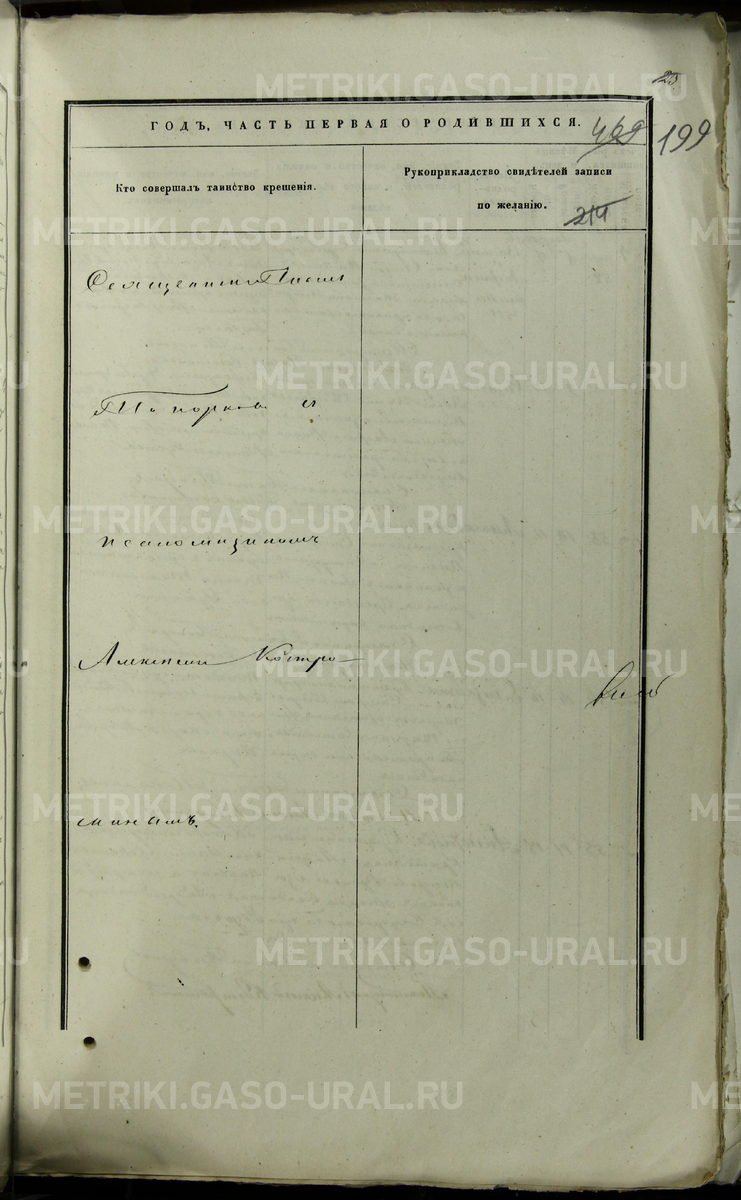 23
ГОДЪ, ЧАСТЬ ПЕРВАЯ О РОДИВШИХСЯ.
469
199
Кто совершалъ таинство крещенія.
Рукоприкладство свидѣтелей записи
по желанію.
214
Священникъ
Топорковъ съ
псаломщикомъ
Алексѣемъ Костро
минымъ.
METRIKI.GASO-URAL.RU